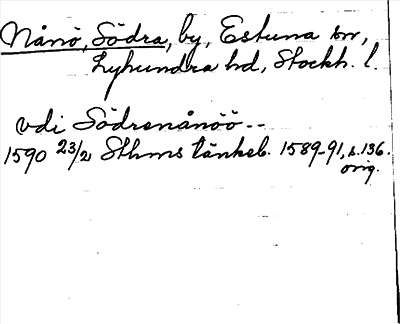 Nånö, Södra, by, Estuna sn,
Lyhundra hd, Stockh. l.
vdi Södrenånöö--
1590 23/2 Sthms tänkeb. 1589-91, s. 136.
orig.